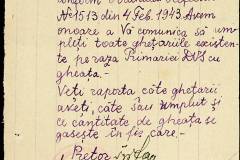 No 1513 din 4 Feb. 1943. Avem
onoare a Vă comunica să um-
pleți toate ghețăriile existen-
te pe raza Primăriei DVS cu
gheață.
Veți raporta câte ghețarii
aveți, câte sau umplut și
ce cantitate de gheață se
găsește în fiecare.-
Pretor